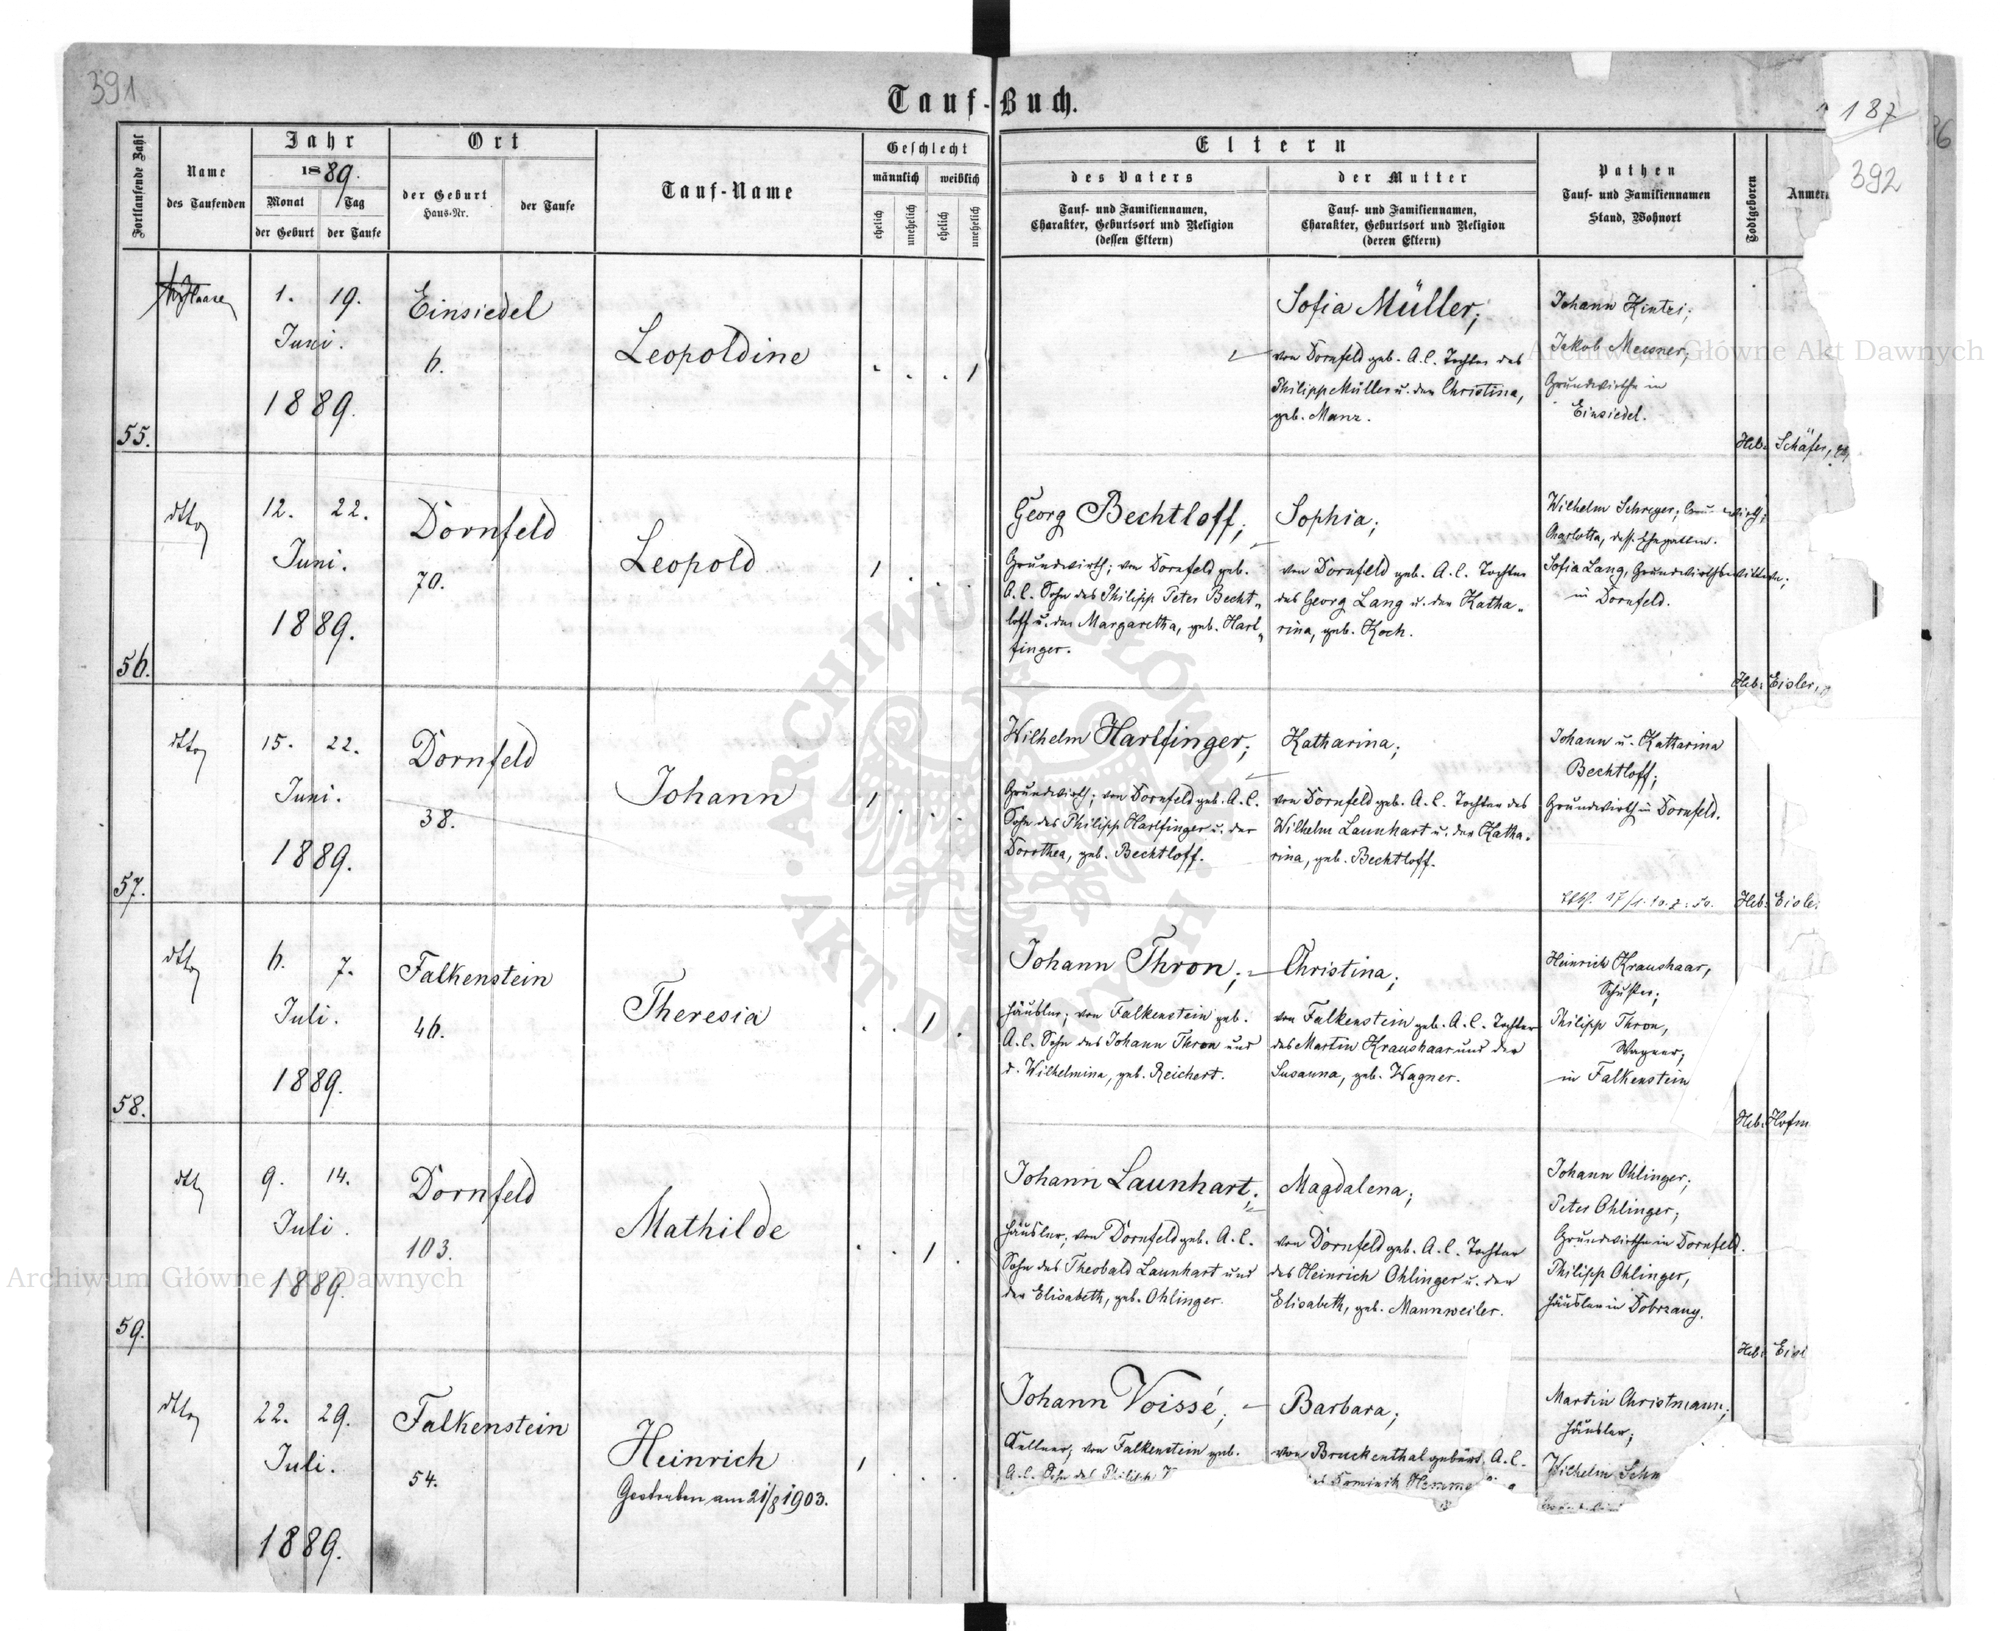 391
Tauf-Buch.
187
392
Fortlaufende Zahl
Name
des Taufenden
Jahr
1889.
Monat
Tag
der Geburt
der Taufe
Ort
der Geburt
Haus-Nr.
der Taufe
Tauf-Name
Geschlecht
männlich
weiblich
ehelich
unehelich
ehelich
unehelich
Eltern
des Vaters
Tauf- und Familiennamen,
Charakter, Geburtsort und Religion
(dessen Eltern)
der Mutter
Tauf- und Familiennamen,
Charakter, Geburtsort und Religion
(deren Eltern)
Pathen
Tauf- und Familiennamen
Stand, Wohnort
Todtgeboren
Anmer
55.
1. 19.
Juni.
1889.
Einsiedel
6.
Leopoldine
1
Sofia Müller;
von Dornfeld geb. A.C. Tochter des
Philipp Müller u. der Christina,
geb. Manz.
Johann Kintzi;
Jakob Messner;
Grundwirthe in
Einsiedel.
Heb. Schäfer,
56.
dtto
12. 22.
Juni.
1889.
Dornfeld
70.
Leopold
1
Georg Bechtloff;
Grundwirth; von Dornfeld geb.
A.C. Sohn des Philipp Peter Becht-
loff u. der Margaretha, geb. Harl-
finger.
Sophia;
von Dornfeld geb. A.C. Tochter
des Georg Lang u. der Katha-
rina, geb. Koch.
Wilhelm Schreyer;
Charlotta, dess. Ehegattin.
Sofia Lang, Grundwirthswittwe;
in Dornfeld.
Heb. Eisler,
57.
dtto
15. 22.
Juni.
1889.
Dornfeld
38.
Johann
1
Wilhelm Harlfinger;
Grundwirth; von Dornfeld geb. A.C.
Sohn des Philipp Harlfinger u. der
Dorothea, geb. Bechtloff.
Katharina;
von Dornfeld geb. A.C. Tochter des
Wilhelm Launhart u. der Katha-
rina, geb. Bechtloff.
Johann u. Katharina
Bechtloff;
Grundwirth in Dornfeld.
Heb. Eisle
58.
dtto
6. 7.
Juli.
1889.
Falkenstein
46.
Theresia
1
Johann Thron;
Häusler; von Falkenstein geb.
A.C. Sohn des Johann Thron und
d. Wilhelmina, geb. Reichert.
Christina;
von Falkenstein geb. A.C. Tochter
des Martin Kraushaar und der
Susanna, geb. Wagner.
Heinrich Kraushaar,
Schuster;
Philipp Thron,
Wagner;
in Falkenstein
Heb. Hofm
59.
dtto
9. 14.
Juli.
1889.
Dornfeld
103.
Mathilde
1
Johann Launhart;
Häusler; von Dornfeld geb. A.C.
Sohn des Theobald Launhart und
der Elisabeth, geb. Ohlinger.
Magdalena;
von Dornfeld geb. A.C. Tochter
des Heinrich Ohlinger u. der
Elisabeth, geb. Mannweiler.
Johann Ohlinger;
Peter Ohlinger;
Grundwirthe in Dornfeld.
Philipp Ohlinger,
Häusler in Dobrzany.
Heb. Eisl
dtto
22. 29.
Juli.
1889.
Falkenstein
54.
Heinrich
Gestorben am 21/8 1903.
1
Johann Voissé;
Kellner; von Falkenstein geb.
A.C. Sohn des Philipp V
Barbara;
von Bruckenthal gebürt. A.C.
Dominik Hemme
Martin Christmann;
Häusler;
Wilhelm Schm
Archiwum Główne Akt Dawnych
Archiwum Główne Akt Dawnych
ARCHIWUM GŁÓWNE · AKT DAWNYCH ·